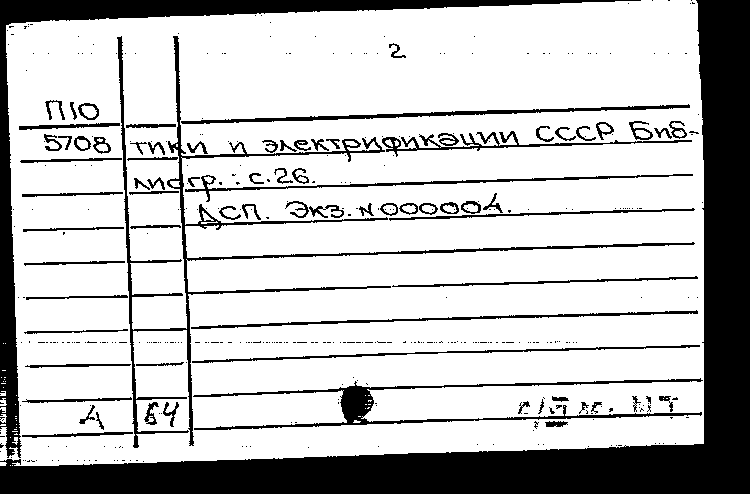 2
П10
5708 тики и электрификации СССР. Биб-
лиогр.: с.26.
ДСП. Экз. N 000004.
А 64